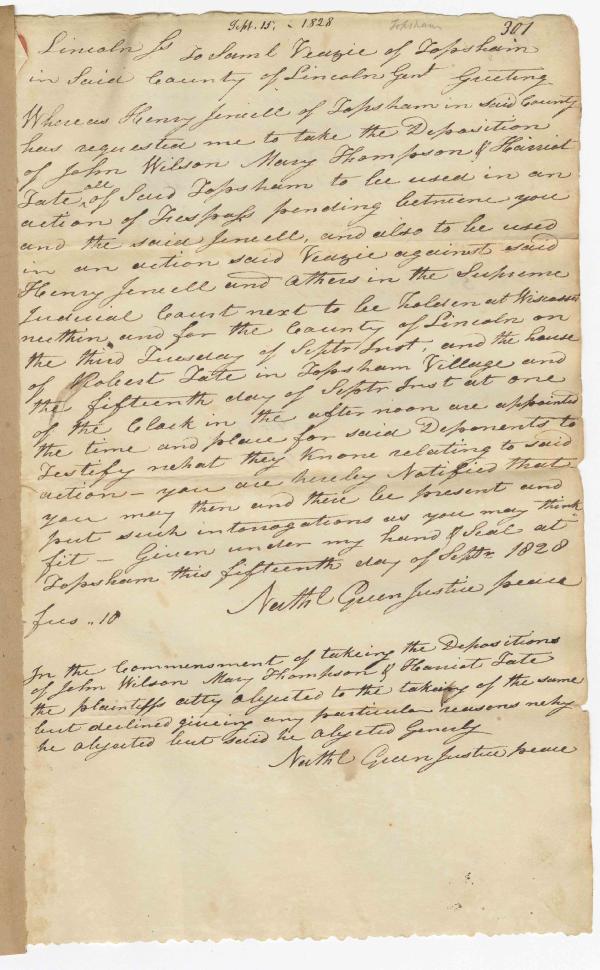 Sept. 15. - 1828 Topsham 301
Lincoln Ss To Saml Veazie of Topsham
in Said County of Lincoln Gent Greeting
Whereas Henry Jewell of Topsham in said County
has requested me to take the Deposition
of John Wilson Mary Thompson & Harriot
Tate all of Said Topsham to be used in an
action of Trespass pending betwene you
and the said Jewell, and also to be used
in an action said Veazie against said
Henry Jewell and others in the Supreme
Judicial Court next to be holden at Wiscasset
within and for the County of Lincoln on
the third Tuesday of Septr Inst, and the house
of Robert Tate in Topsham Village and
the fifteenth day of Septr Inst at one
of the Clock in the after noon are appointed
the time and place for said Deponents to
Testify what they Know relating to said
action - you are hereby Notified that
you may then and there be present and
put such intorrogations as you may think
fit - Given under my hand & Seal at
Topsham this fifteenth day of Septr 1828
Nathl Green Justice peace
fees ,, 10
In the Commensment of takeing the Depositions
of John Wilson Mary Thompson & Harriot Tate
the plaintiffs atty objected to the taking of the same
but declined giveing any particular reasons why
he objected but said he objected Generly
Nathl Green Justice peace